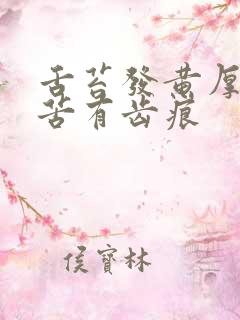 舌苔發黄厚
苦有齿痕
侯寶林